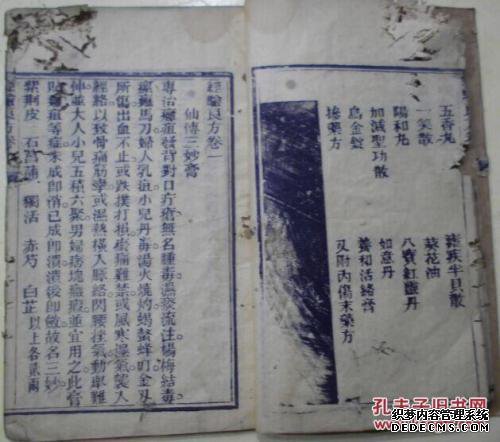 五香丸　瘧疾半貝散
一笑散　菜花油
陽和丸　八寶紅靈丹
加減聖功散　如意丹
烏金錠　養和活絡膏
搽藥方　又附內傷末藥方
經驗良方卷一
仙傳三妙膏
專治癰疽發背對口疔瘡無名腫毒濕瘀流注楊梅結毒
瘰癧馬刀婦人乳疽小兒丹毒湯火燒灼蝎螫蜂叮金刃
所傷出血不止或跌撲打損疼痛難禁或風寒濕氣襲人
經絡以致骨痛筋攣或濕熱橫入脈絡閃腰挫氣動舉難
伸並大人小兒五積六聚男婦痞塊癥瘕並宜用之此膏
貼癰疽等症未成卽消已成卽潰潰後卽斂故名三妙
紫荊皮　石菖蒲　獨活　赤芍　白芷以上各貳兩
經驗良方卷
孔夫子旧书网